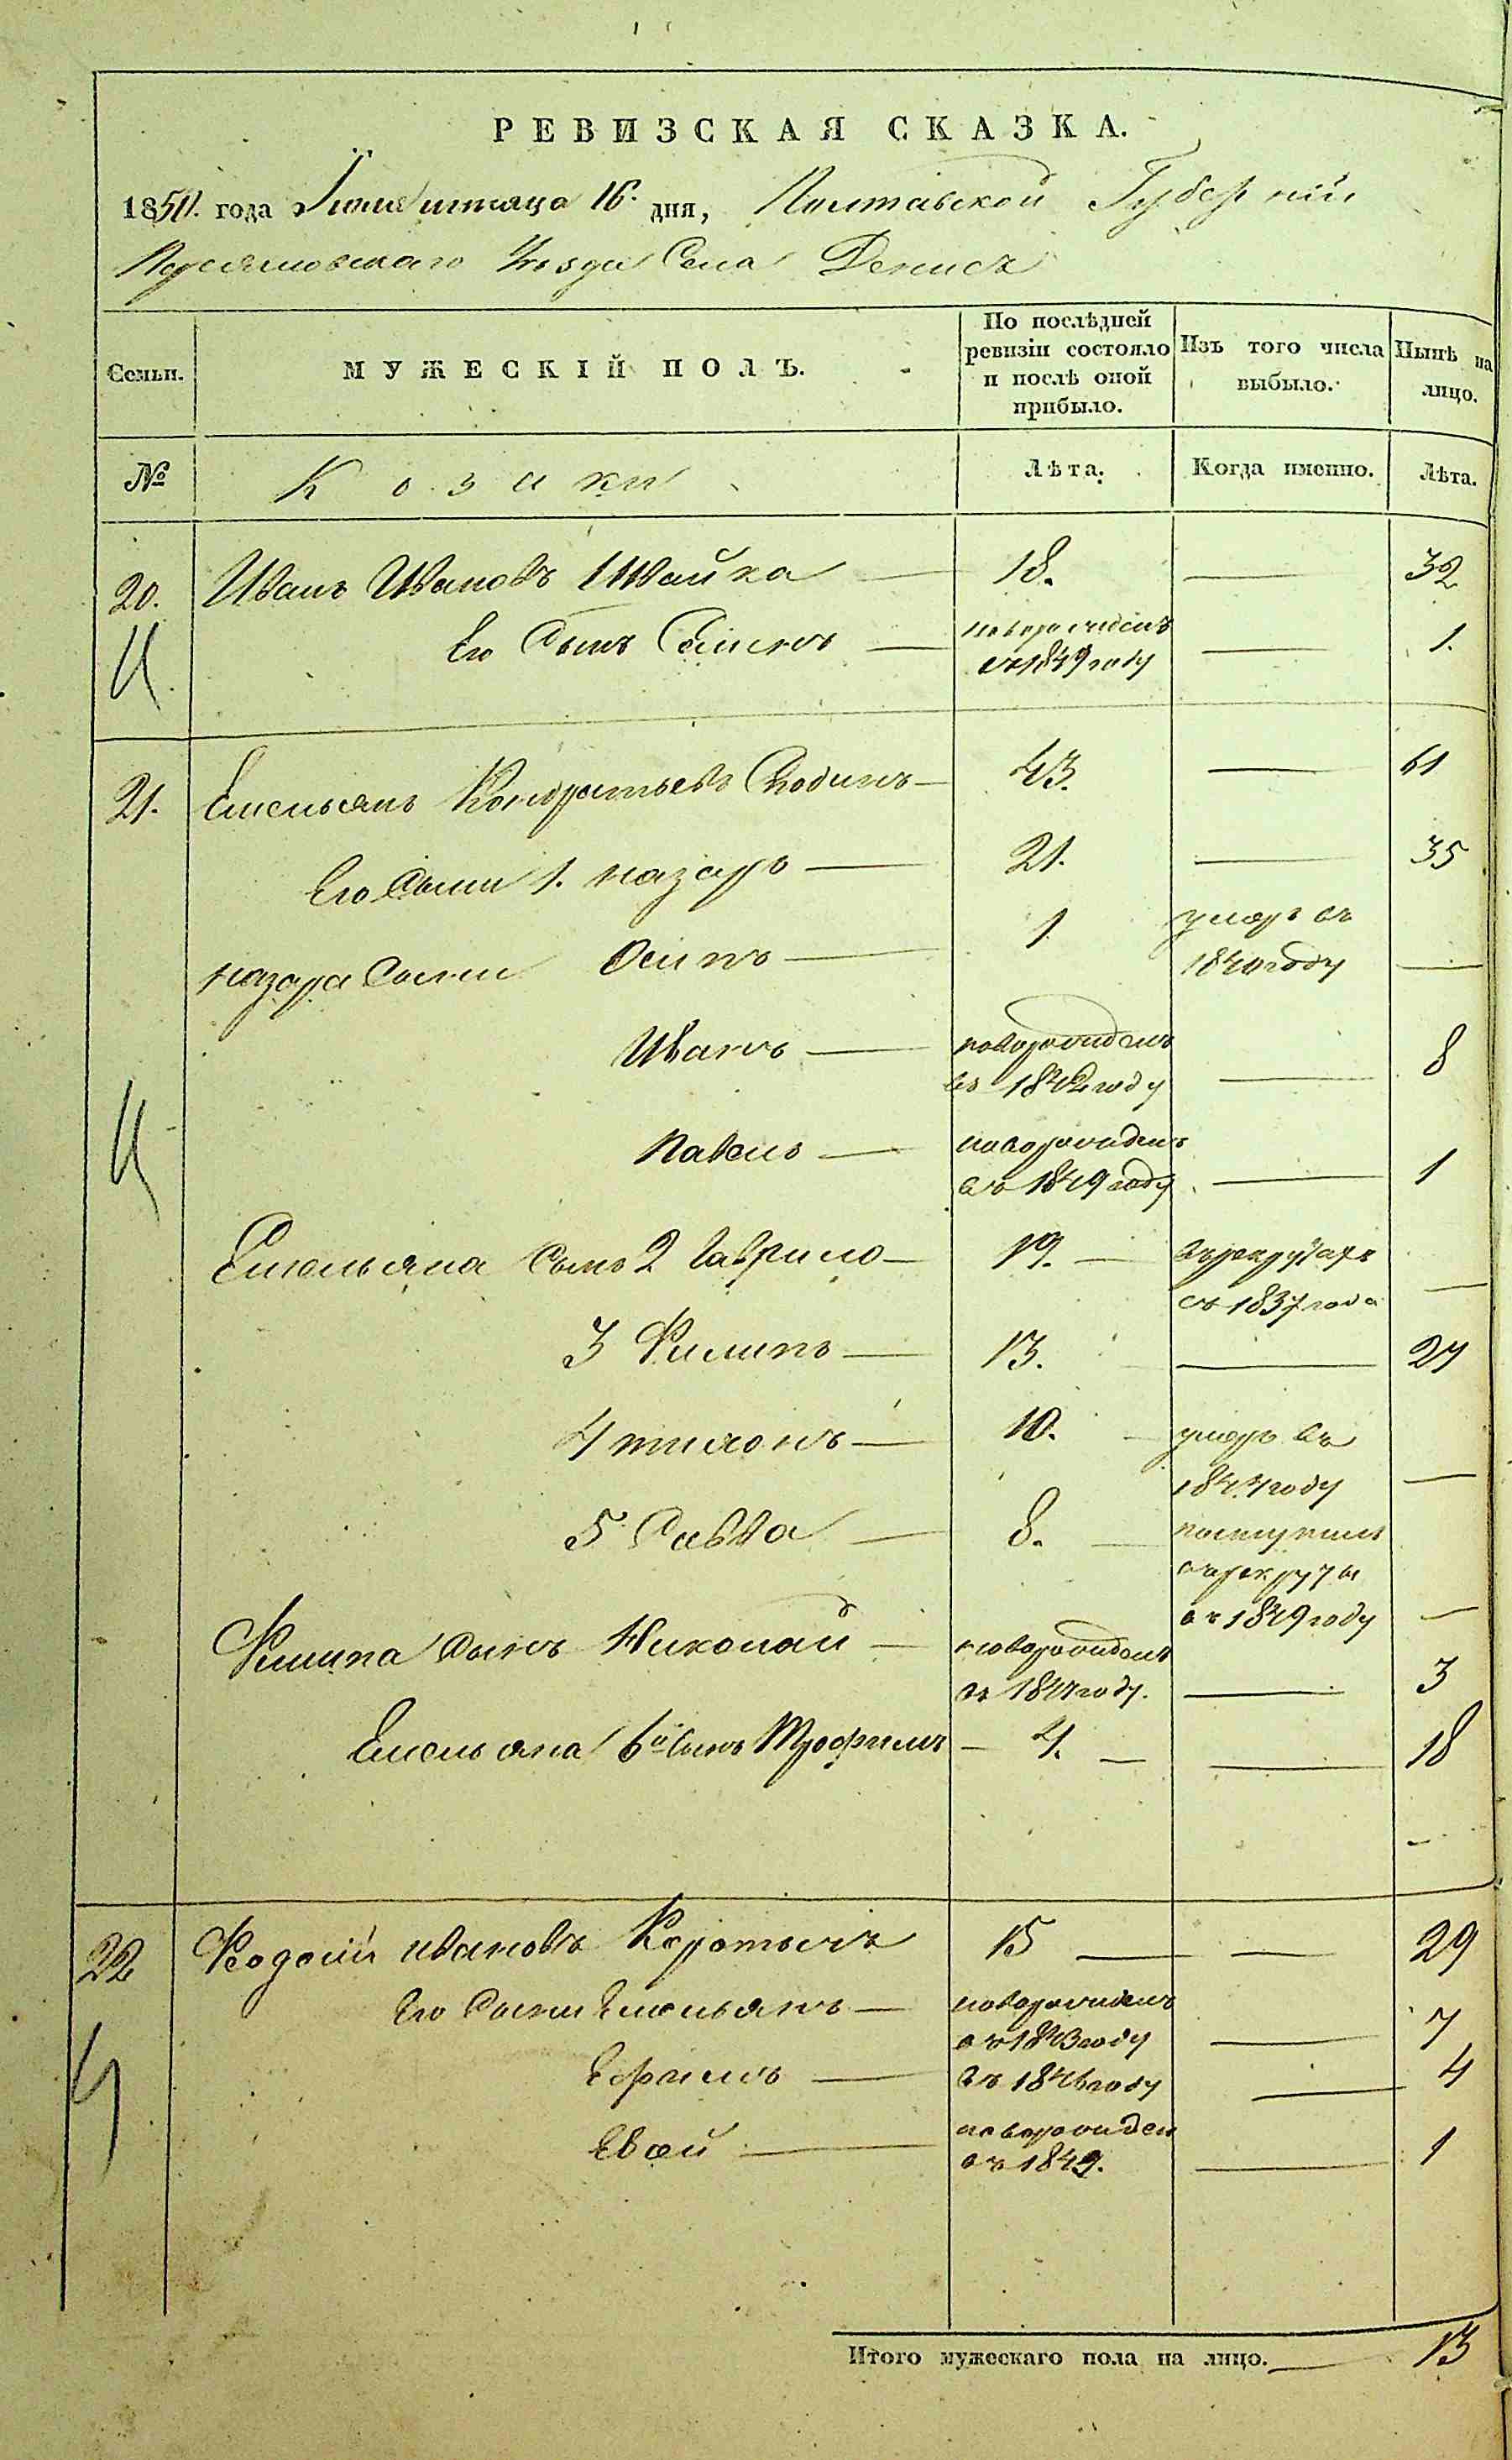 РЕВИЗСКАЯ СКАЗКА.
1850. года Іюня мѣсяца 16. дня, Полтавской Губерніи
Переяславскаго Уѣзда Села Денисъ
Семьи.
МУЖЕСКІЙ ПОЛЪ.
По послѣдней ревизіи состояло и послѣ оной прибыло.
Изъ того числа выбыло.
Нынѣ на лицо.
№ Козаки Лѣта. Когда именно. Лѣта.
20. Иванъ Ивановъ Швайка — 18. — 32
Его Сынъ Семенъ — новорожденъ — 1.
въ 1849 году
21. Емельянъ Кондратьевъ — 43. — 61
Его Сыны 1. Назаръ — 21. — 35
Назара Сыны Осипъ — 1 умеръ въ
1840 году —
Иванъ — новорожденъ 8
въ 1842 году —
Павелъ — новорожденъ
въ 1849 году — 1
Емельяна Сынъ 2 Гаврило — 19. — въ рекрутахъ
съ 1837 года —
3 Филипъ — 13. — 27
4 тихонъ — 10. — умеръ въ
1844 году —
5 Савва — 8. — поступилъ
в рекруты
въ 1849 году —
Филипа Сынъ Николай — новорожденъ
въ 1847 году. — 3
Емельяна 6й Сынъ Трофимъ — 4. — — 18
22 Феодосій Ивановъ Коротычъ 15 — — 29
Его Сыны Емельянъ — новорожденъ
въ 1843 году — 7
Ефимъ — въ 1846 году — 4
Евсей — новорожден
въ 1849. — 1
Итого мужескаго пола на лицо. — 13